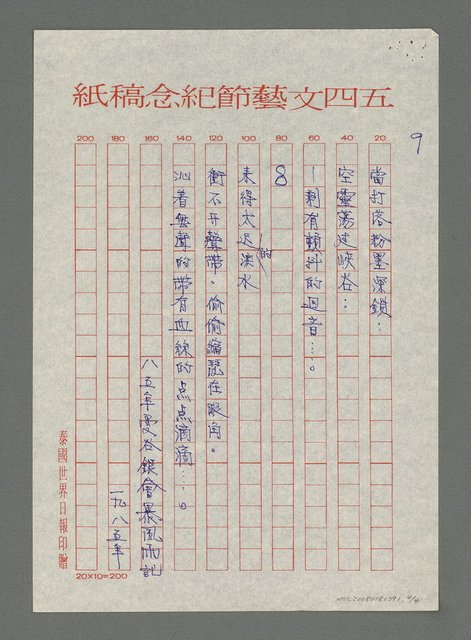 五四文藝節紀念稿紙
9
20
40
60
80
100
120
140
160
180
200
當打落粉墨深鎖：
空靈蕩过峽谷：
—剩有顫抖的迴音…。
8
來得太迟的淚水
衝不开聲帶。偷偷縮瑟在眼角。
沁着無聲的帶有血絲的点点滴滴…。
八五年曼谷銀會暴風雨記
一九八五年
泰國世界日報印贈
20×10=200